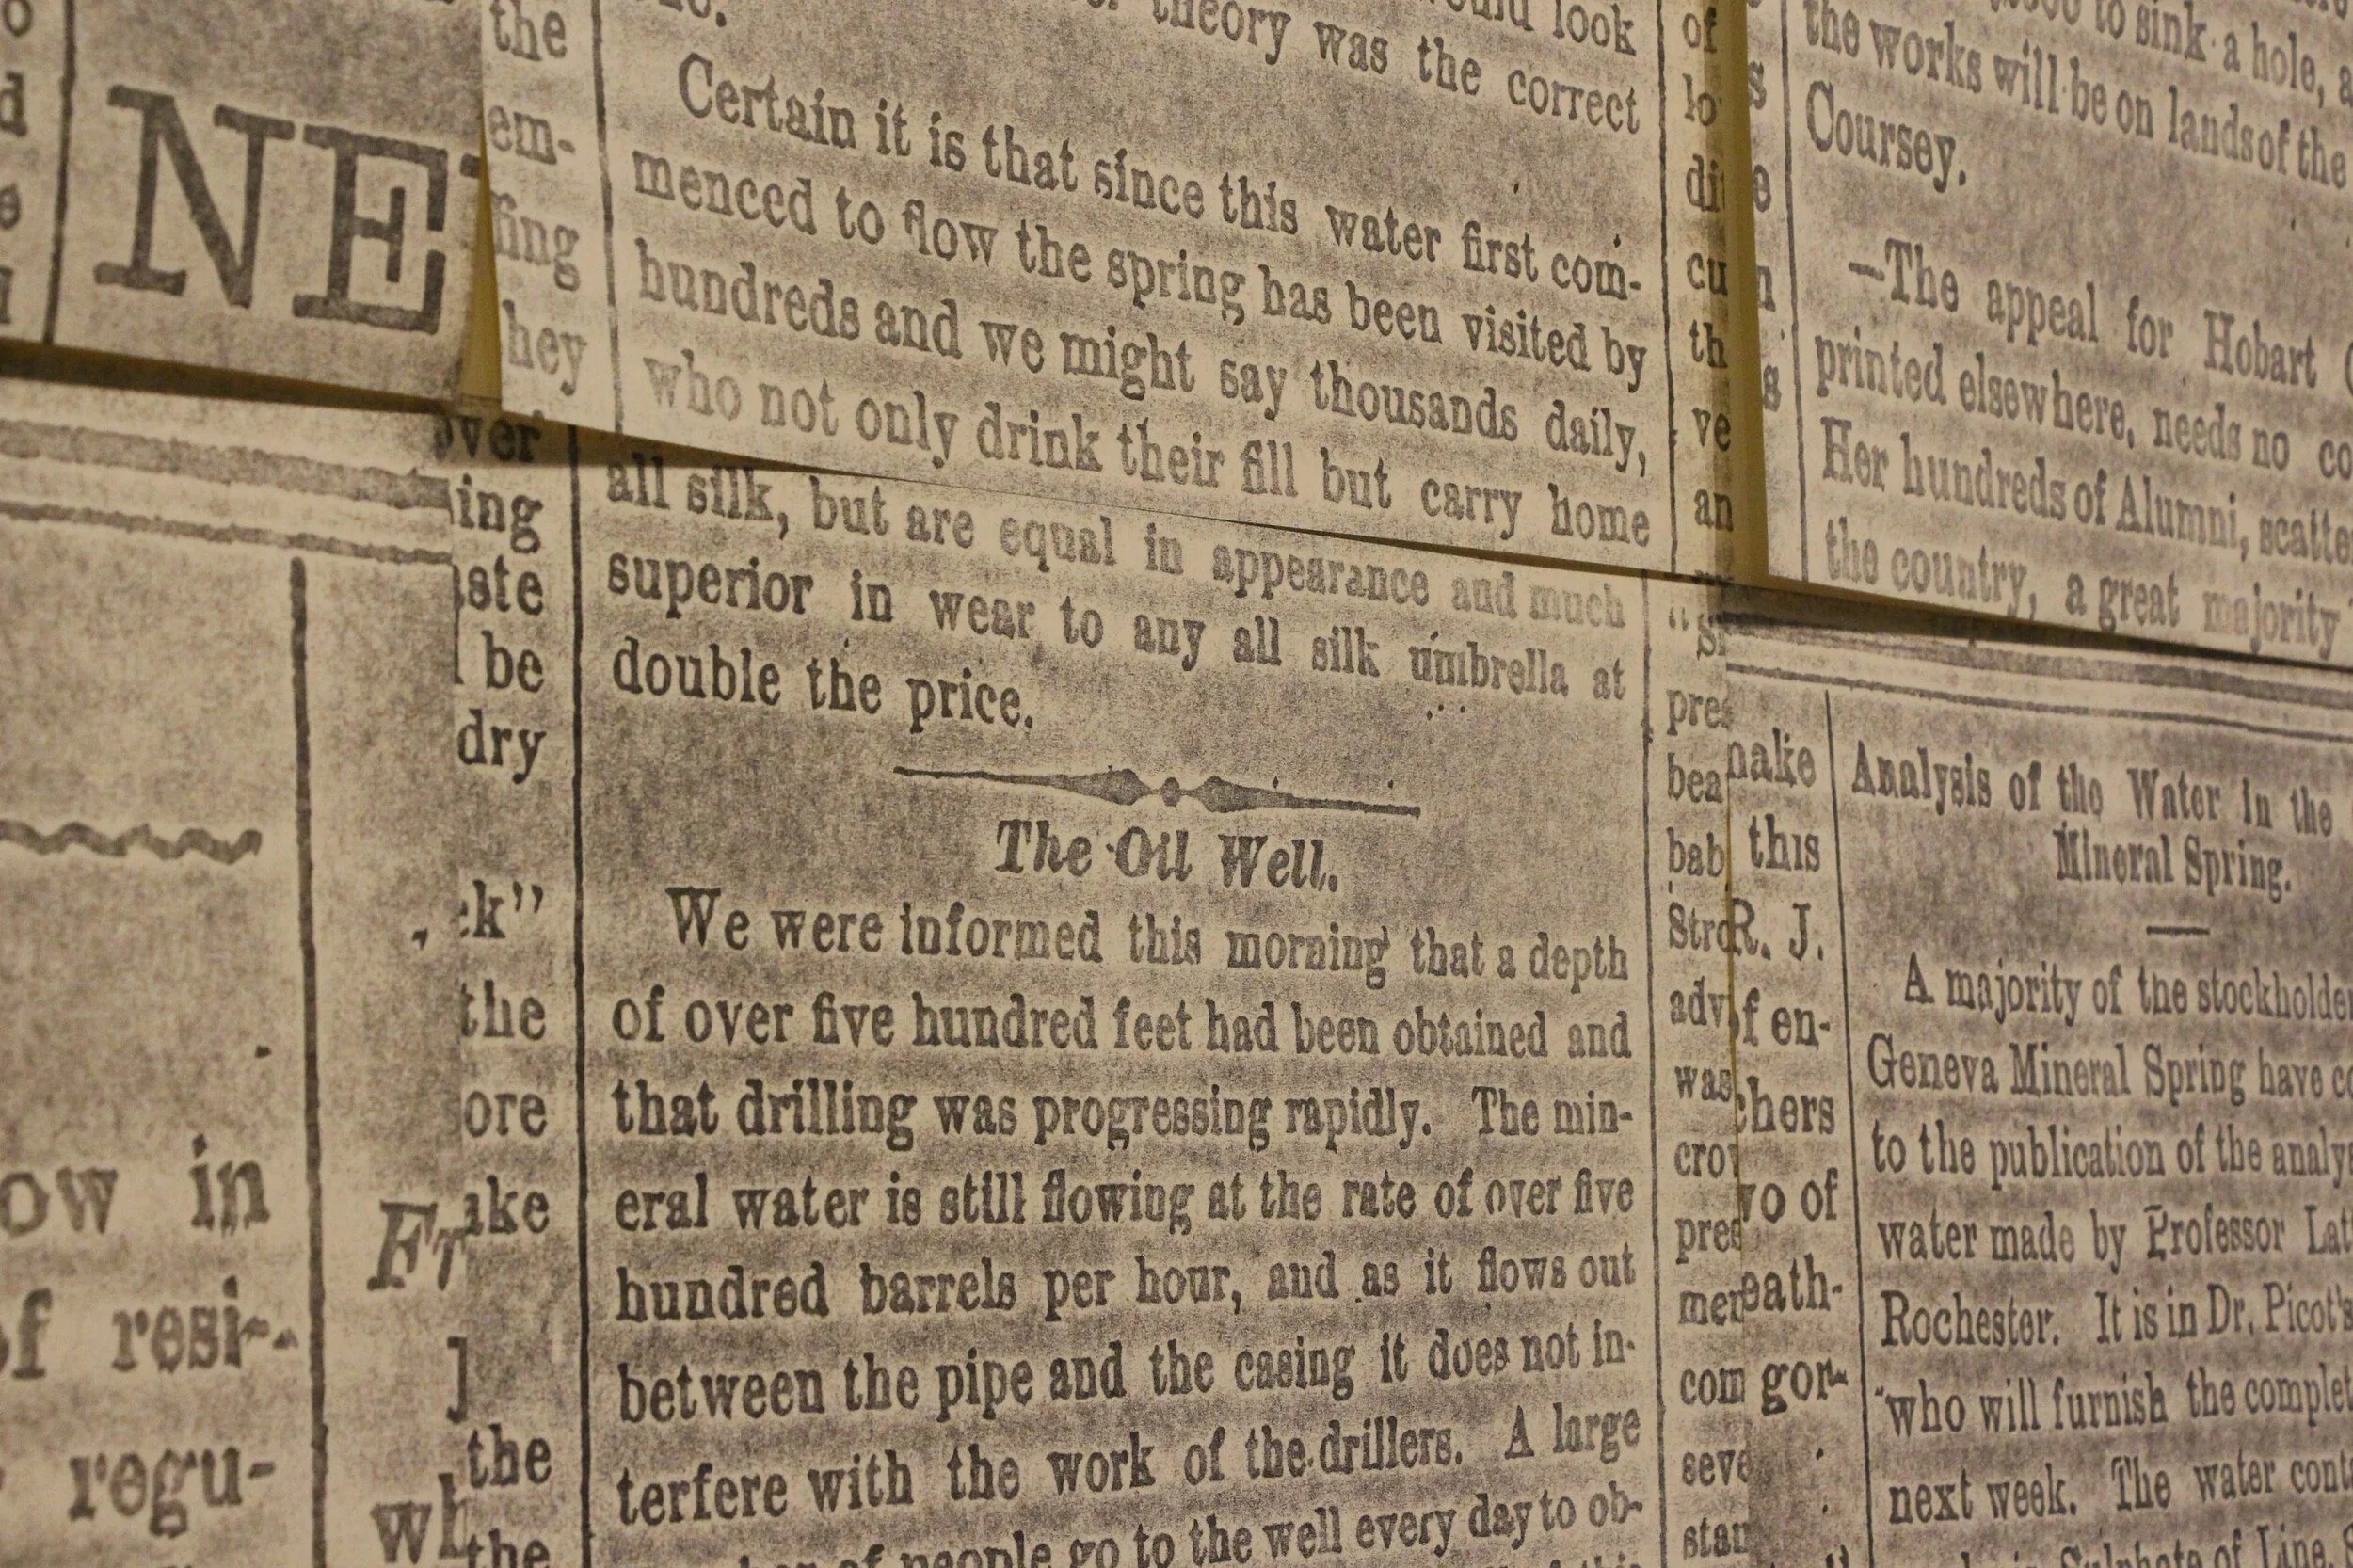 NE
the
em-
fing
hey
look
theory was the correct
Certain it is that since this water first com-
menced to flow the spring has been visited by
hundreds and we might say thousands daily,
who not only drink their fill but carry home
of
lo
di
cu
th
ve
an
to sink a hole, a
the works will be on lands of the
Coursey.
—The appeal for Hobart
printed elsewhere, needs no co
Her hundreds of Alumni, scatte
the country, a great majority
ow in
of resi-
regu-
Fr
wh
over
ing
be
dry
k"
the
ore
ake
the
the
all silk, but are equal in appearance and much
superior in wear to any all silk umbrella at
double the price.
The Oil Well.
We were informed this morning that a depth
of over five hundred feet had been obtained and
that drilling was progressing rapidly. The min-
eral water is still flowing at the rate of over five
hundred barrels per hour, and as it flows out
between the pipe and the casing it does not in-
terfere with the work of the drillers. A large
of people go to the well every day to ob-
pres
bea
bab
Stro
adv
was
cro
pres
mer
com
seve
stan
make
this
R. J.
of en-
chers
wo of
eath-
gor-
Analysis of the Water in the
Mineral Spring.
A majority of the stockholder
Geneva Mineral Spring have co
to the publication of the analy
water made by Professor Lat
Rochester. It is in Dr. Picot's
who will furnish the complet
next week. The water cont
Sulphate of Lime,